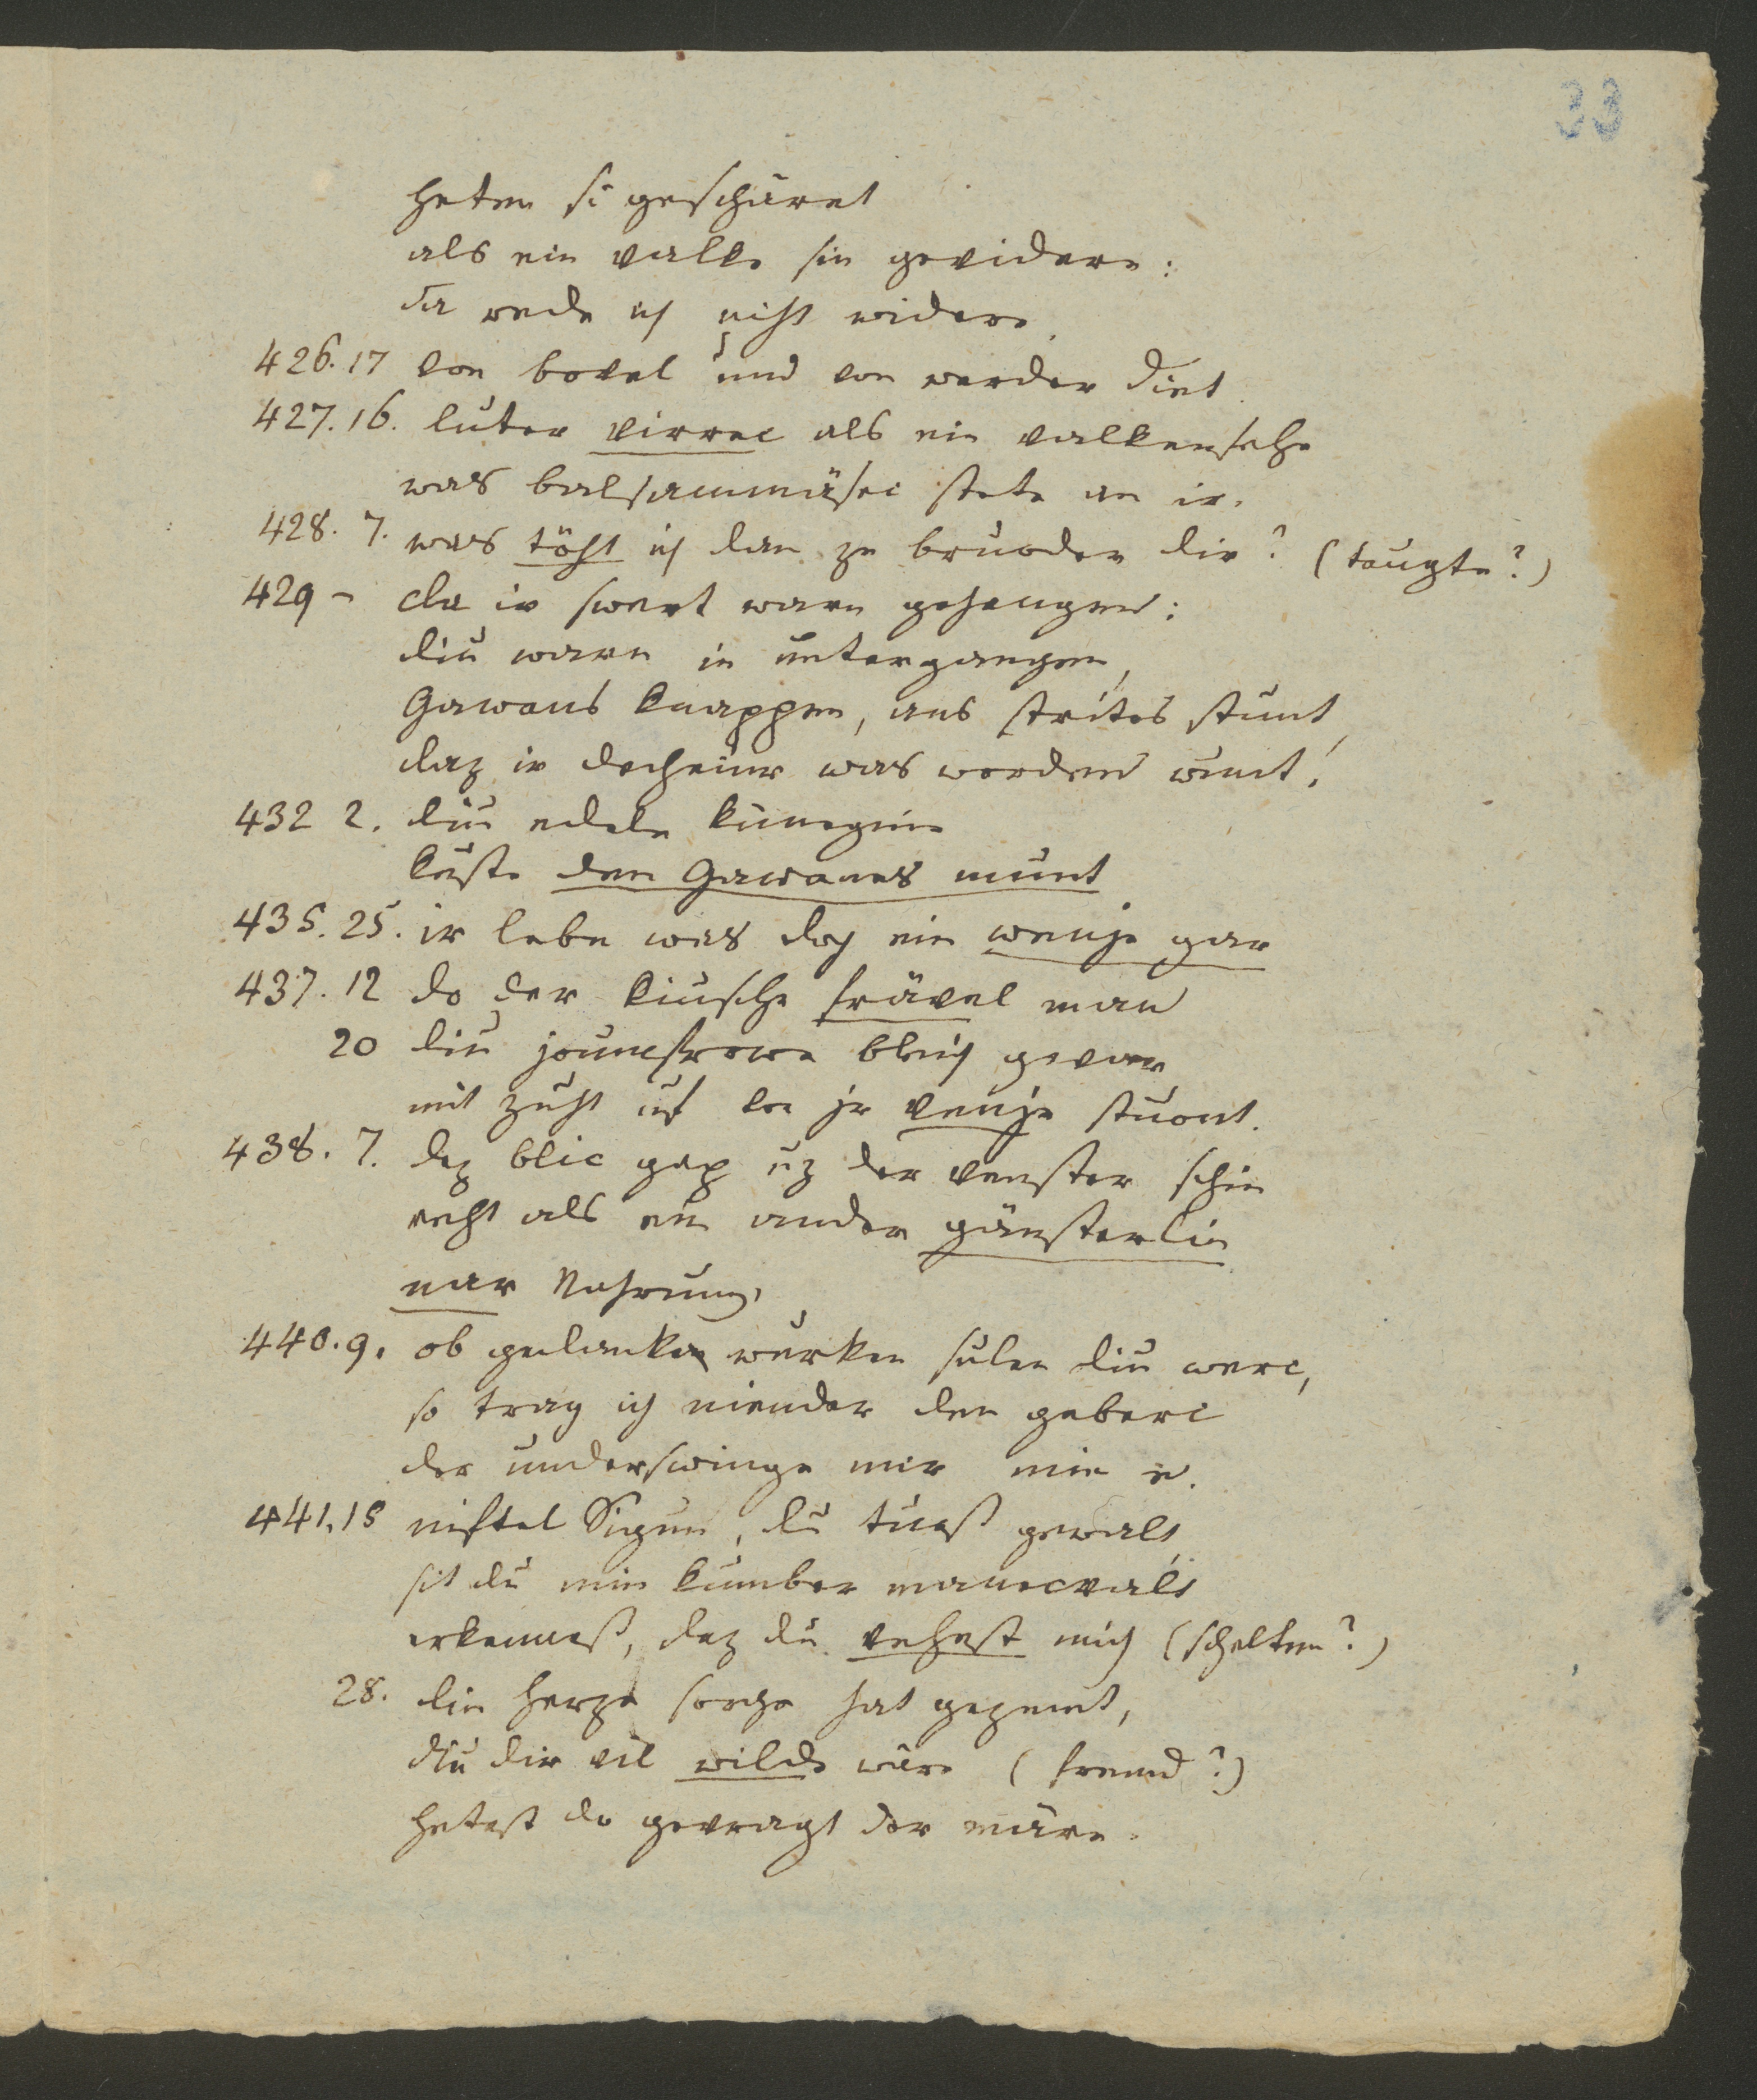 33
heten si geschüret
als ein valke sin gevidere:
da rede ich niht widere.
426.17 von bovel und von werder diet.
427.16. luter virrec als ein valkensehe
was balsammäsec stete an ir.
428. 7. was töht ich dan ze bruoder dir? (taugte?)
429 - da ir swert warn gehangen:
diu warn in untergangen,
Gawans knappen, ans strites stunt,
daz ir decheiner was worden wunt.
432 2. diu edele kunegin
kuste den Gawanes munt
435. 25. ir lebn was doch ein wenje gar
437. 12 do der kiusche frävel man
20 diu jouncfrowe bleich gevar
mit zuht uf von ir venje stuont.
438. 7. dez blic gap uz der venster schin
reht als ein ander gänsterlin
nar Nahrung.
440. 9. ob gedanken wurken sulen diu werc,
so trag ich niender den geberc
der underswinge mir min e.
441,15 niftel Sigun, du tuost gewalt
sit du min kumber manecvalt
erkennest, daz du vehest mich (schelten?)
28. din herze sorge hat gezemt,
diu dir vil wilde wäre (fremd?)
hetest do gevragt der märe.